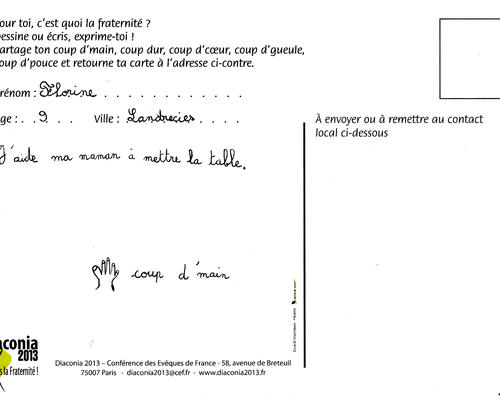 our toi, c'est quoi la fraternité ?
essine ou écris, exprime-toi !
artage ton coup d'main, coup dur, coup d'cœur, coup d'gueule,
oup d'pouce et retourne ta carte à l'adresse ci-contre.
rénom : Florine . . . . . . . . . . . .
ge : . . 9 . . Ville : Landrecies . . . .
J'aide ma maman à mettre la table.
coup d'main
À envoyer ou à remettre au contact
local ci-dessous
aconia
2013
s la Fraternité !
Diaconia 2013 – Conférence des Evêques de France - 58, avenue de Breteuil
75007 Paris - diaconia2013@cef.fr - www.diaconia2013.fr